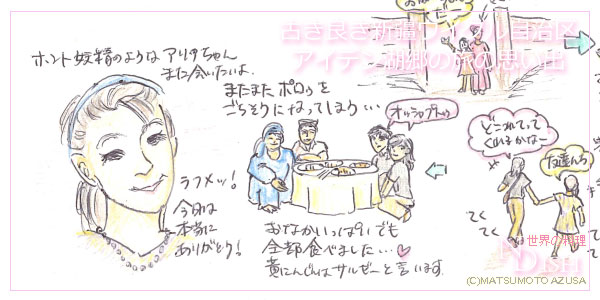 古き良き新疆ウイグル自治区
アイデン湖郷の旅の思い出
ホント妖精のような アリアちゃん
また会いたいよ。
またまた ポロゥを
ごちそうになってしまう…
オッシャプトゥゥ
どこつれてって
くれるかなー
友達んち
ラフメッ!
今日は
本当に
ありがとう!
おなかいっぱいでも
全部食べました…♡
黄にんじんはサルゼーと言います。
てく
てく
てく
てく
世界の料理
NDISH
(C)MATSUMOTO AZUSA